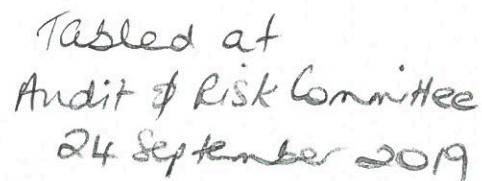 Tabled at
Audit & Risk Committee
24 September 2019